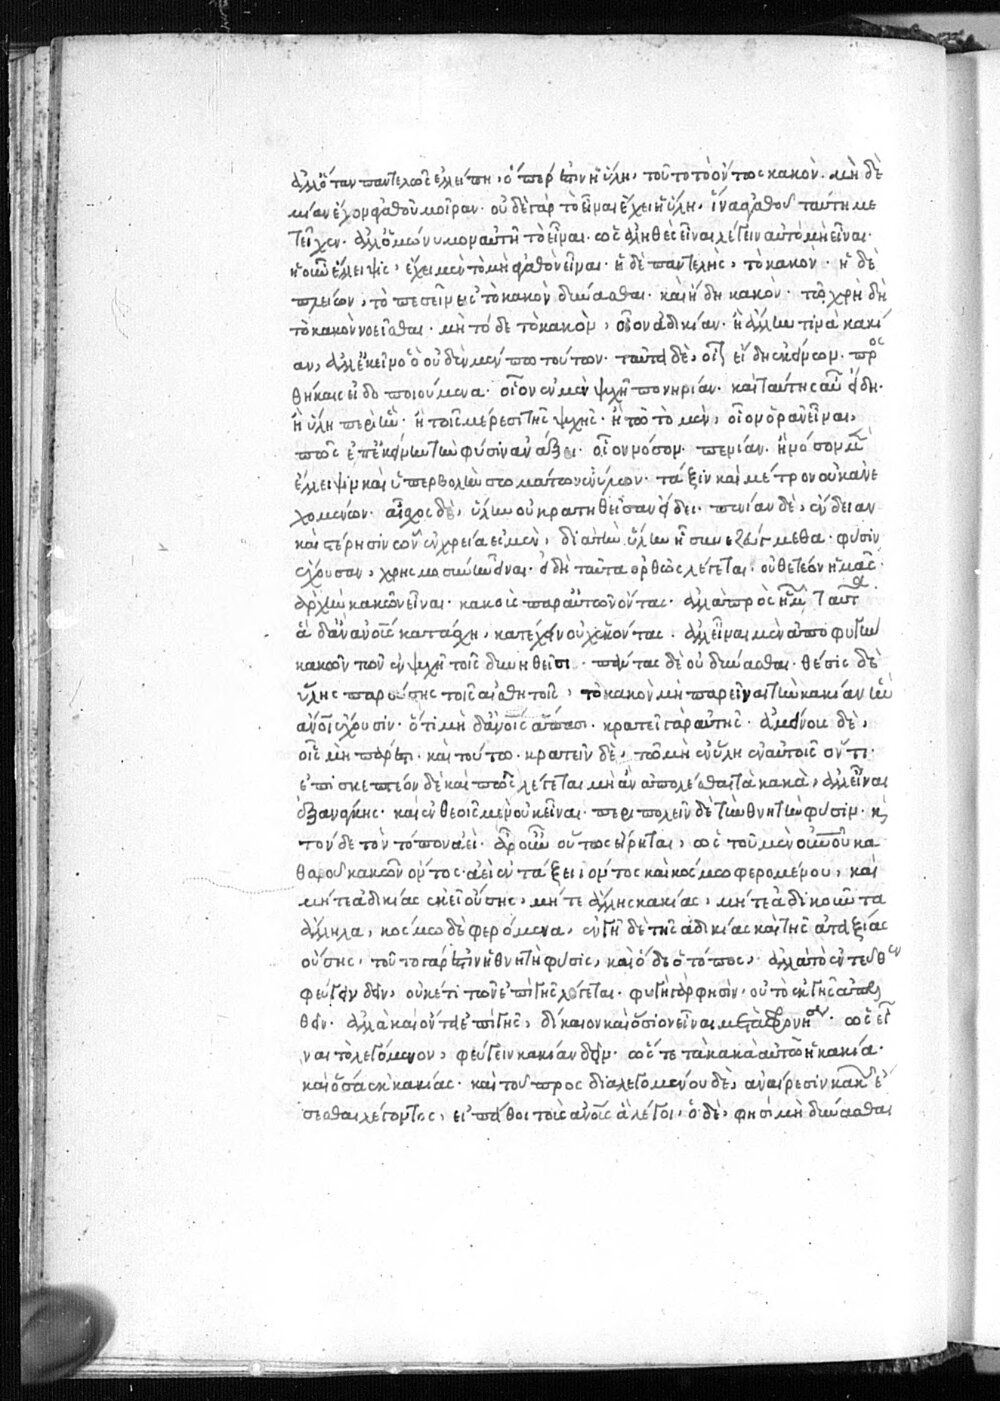 ἀλλ' ὅταν παντελῶς ἐλλείπη, ὅπερ ἐστὶν ἡ ὕλη, τοῦτο τὸ ὄντως κακὸν. μὴ δὲ
μίαν ἔχον ἀγαθοῦ μοῖραν. οὐδὲ γὰρ τὸ εἶναι ἔχει ἡ ὕλη, ἵνα ἀγαθοῦ ταύτη με
τεῖχεν. ἀλλ' ὁμώνυμον αὐτῆ τὸ εἶναι. ὡς ἀληθὲς εἶναι λέγειν αὐτὸ μὴ εἶναι.
ἡ οὖν ἔλλειψις, ἔχει μὲν τὸ μὴ ἀγαθὸν εἶναι. ἡ δὲ παντελὴς, τὸ κακὸν. ἡ δὲ
πλείων, τὸ πεσεῖν εἰς τὸ κακὸν δύνασθαι. καὶ ἤδη κακὸν. τῶ χρὴ δὴ
τὸ κακὸν νοεῖσθαι. μὴ τόδε τὸ κακὸν, οἷον ἀδικίαν. ἢ ἄλλην τινὰ κακί
αν, ἀλλ' ἐκεῖνο ὃ οὐδὲν μέν πω τούτων. ταῦτα δὲ, οἷον εἴδη ἐκείνου. προσ
θήκαις εἰδοποιούμενα. οἷον ἐν μὲν ψυχῆ πονηρίαν. καὶ ταύτης αὖ εἴδη.
ἢ ὕλη περὶ ἣν. ἢ τοῖς μέρεσι τῆς ψυχῆς. ἢ τῶ τὸ μὲν, οἷον ὁρᾶν εἶναι,
πῶς ἐπ' ἐκείνην τὴν φύσιν ἀνάξει. οἷον νόσον. πενίαν. ἢ νόσον μὲν
ἔλλειψιν καὶ ὑπερβολὴν σωμάτων ἐνύλων. τάξιν καὶ μέτρον οὐκ ἀνε
χομένων. αἶσχος δὲ, ὕλην οὐ κρατηθεῖσαν εἴδει. πενίαν δὲ, ἔνδειαν
καὶ στέρησιν ὧν ἐν χρεία ἐσμὲν, διὰ τὴν ὕλην ἧ συνεζεύγμεθα. φύσιν
ἔχουσαν, χρησμοσύνην εἶναι. εἰ δὴ ταῦτα ὀρθῶς λέγεται. οὐ θετέον ἡμᾶς
ἀρχὴν κακῶν εἶναι. κακοὺς παρ' αὑτῶν ὄντας. ἀλλὰ πρὸ ἡμῶν ταῦτα.
ἃ δ' ἂν ἀνους κατάσχη, κατέχειν οὐχ ἑκόντας. ἀλλ' εἶναι μὲν ἀποφυγὴν
κακῶν τῶν ἐν ψυχῆ τοῖς δυνηθεῖσι. πάντας δὲ οὐ δύνασθαι. θέσις δὲ
ὕλης παρούσης τοῖς αἰσθητοῖς, τὸ κακὸν μὴ παρεῖναι τὴν κακίαν ἣν
ἀνοις ἔχουσιν. ὅτι μὴ δ' ἀνοις ἅπασι. κρατεῖ γὰρ αὐτῆς. ἀμείνους δὲ,
οἷς μὴ πάρεστι. καὶ τούτω. κρατεῖν δὲ, τῶ μὴ ἐν ὕλη ἐν αὐτοῖς ὄντι.
ἐπισκεπτέον δὲ καὶ πῶς λέγεται μὴ ἂν ἀπολέσθαι τὰ κακὰ, ἀλλ' εἶναι
ἐξ ἀνάγκης. καὶ ἐν θεοῖς μὲν οὐκ εἶναι. περιπολεῖν δὲ τὴν θνητὴν φύσιν. καὶ
τόνδε τὸν τόπον ἀεὶ. ἆρ' οὖν οὕτως εἴρηται, ὡς τοῦ μὲν οὐνοῦ κα
θαροῦ κακῶν ὄντος ἀεὶ ἐν τάξει ἰόντος καὶ κόσμω φερομένου, καὶ
μήτε ἀδικίας ἐκεῖ οὔσης, μήτε ἄλλης κακίας, μήτε ἀδικοῦντα
ἄλληλα, κόσμω δὲ φερόμενα, ἐν γῆ δὲ τῆς ἀδικίας καὶ τῆς ἀταξίας
οὔσης. τοῦτο γάρ ἐστιν ἡ θνητὴ φύσις, καὶ ὅδε ὁ τόπος. ἀλλὰ τὸ ἐντεῦθεν
φεύγειν δεῖν, οὐκέτι τῶν ἐπὶ γῆς λέγεται. φυγὴ γάρ φησιν. οὐ τὸ ἐκ γῆς ἀπελ
θεῖν. ἀλλὰ καὶ ὄντα ἐπὶ γῆς, δίκαιον καὶ ὅσιον εἶναι μετὰ φρονήσεως. ὡς εἶ
ναι τὸ λεγόμενον, φεύγειν κακίαν δεῖν. ὥστε τὰ κακὰ αὐτῶ ἡ κακία.
καὶ ὅσα ἐκ κακίας. καὶ τοῦ προσδιαλεγομένου δὲ, ἀναίρεσιν κακῶν ἔ
σεσθαι λέγοντος, εἰ πείθοι τοὺς ἀνους ἃ λέγοι, ὁ δὲ, φησὶ μὴ δύνασθαι